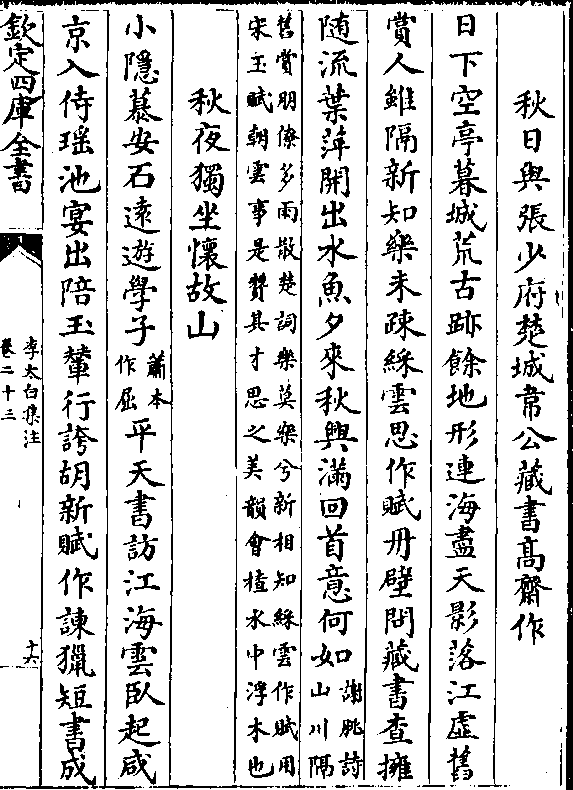 秋日與張少府楚城韋公藏書髙齋作
日下空亭暮城荒古跡餘地形連海盡天影落江虛舊
賞人雖隔新知樂未疎綵雲思作賦丹壁問藏書查擁
随流葉萍開出水魚夕來秋興滿回首意何如謝朓詩山川隔
舊賞朋僚多雨散楚詞樂莫樂兮新相知綵雲作賦用
宋玉賦朝雲事是賛其才思之美韻會楂水中浮木也
秋夜獨坐懷故山
小隱慕安石遠遊學子蕭本作屈平天書訪江海雲臥起咸
京入侍瑶池宴出陪玉輦行誇胡新賦作諫獵短書成
欽定四庫全書
李太白集注
卷二十三
十六